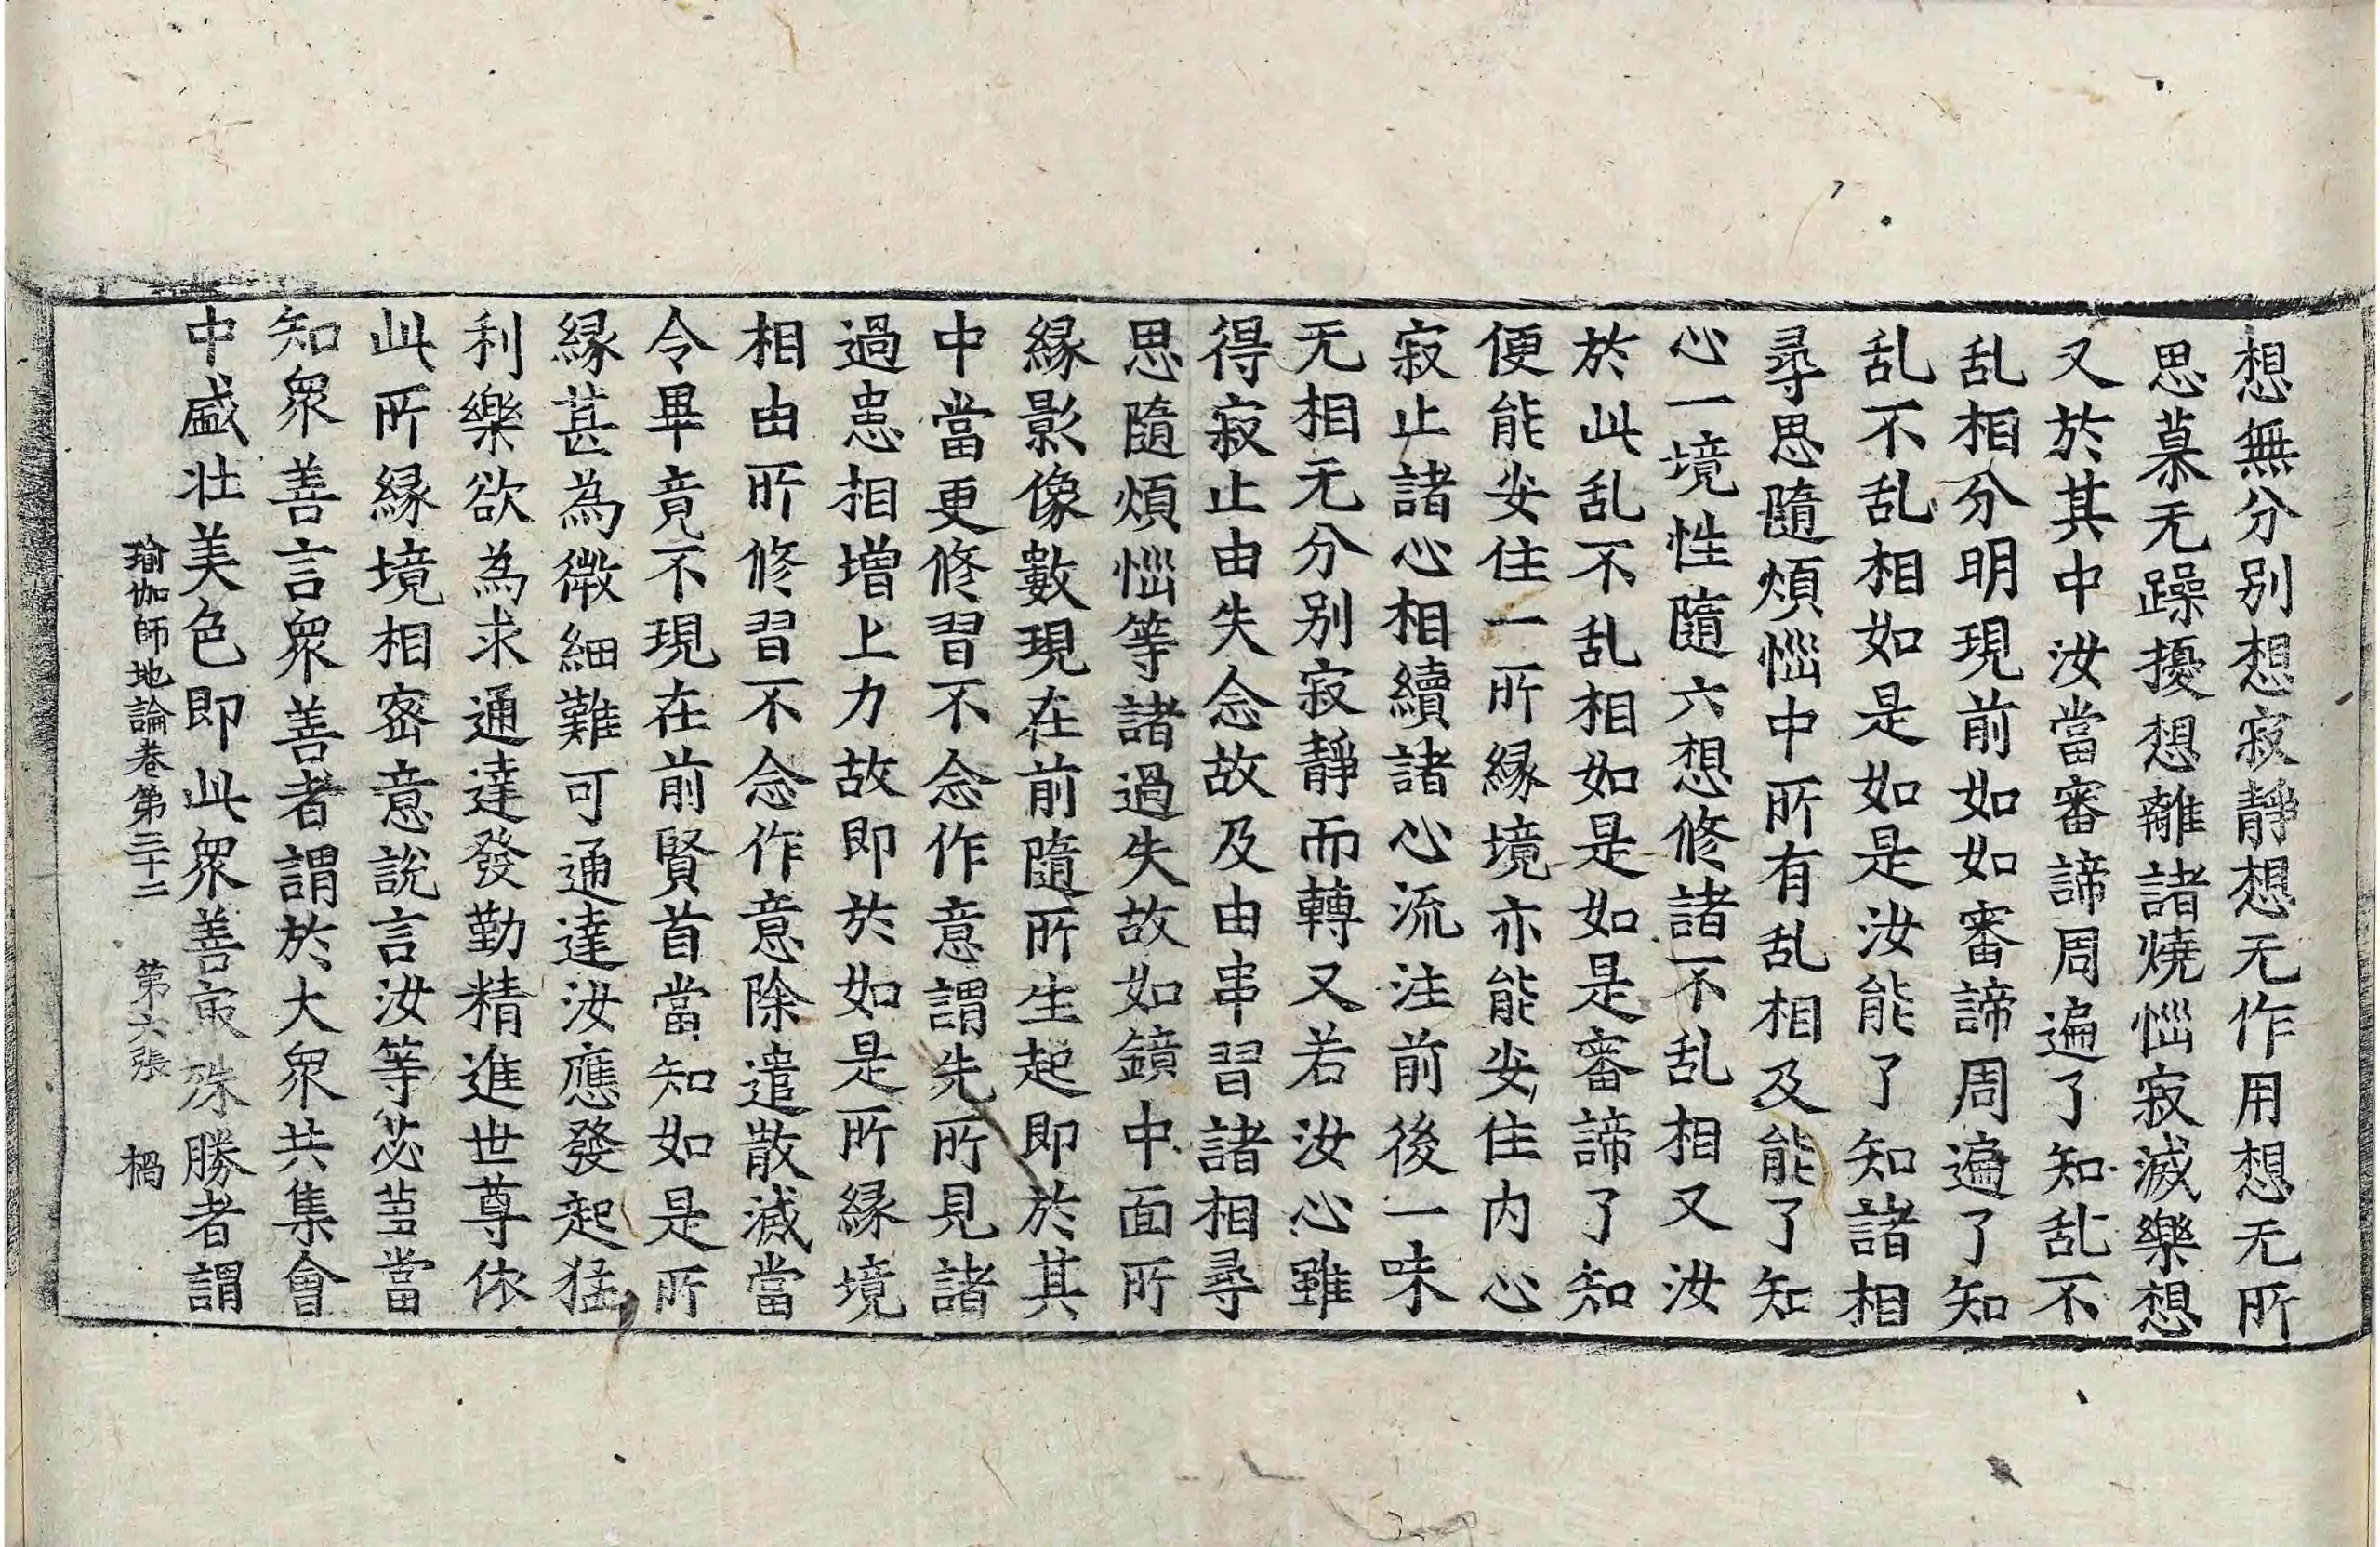 想無分別想寂靜想无作用想无所
思慕无躁擾想離諸燒惱寂滅樂想
又於其中汝當審諦周遍了知乱不
乱相分明現前如如審諦周遍了知
乱不乱相如是如是汝能了知諸相
尋思隨煩惱中所有乱相及能了知
心一境性隨六想修諸不乱相又汝
於此乱不乱相如是如是審諦了知
便能安住一所緣境亦能安住内心
寂止諸心相續諸心流注前後一味
无相无分別寂靜而轉又若汝心雖
得寂止由失念故及由串習諸相尋
思隨煩惱等諸過失故如鏡中面所
緣影像數現在前隨所生起即於其
中當更修習不念作意謂先所見諸
過患相增上力故即於如是所緣境
相由所修習不念作意除遣散滅當
令畢竟不現在前賢首當知如是所
緣甚為微細難可通達汝應發起猛
利樂欲為求通達發勤精進世尊依
此所緣境相密意說言汝等苾芻當
知衆善言衆善者謂於大衆共集會
中盛壯美色即此衆善㝡殊勝者謂
瑜伽師地論卷第三十二 第六張